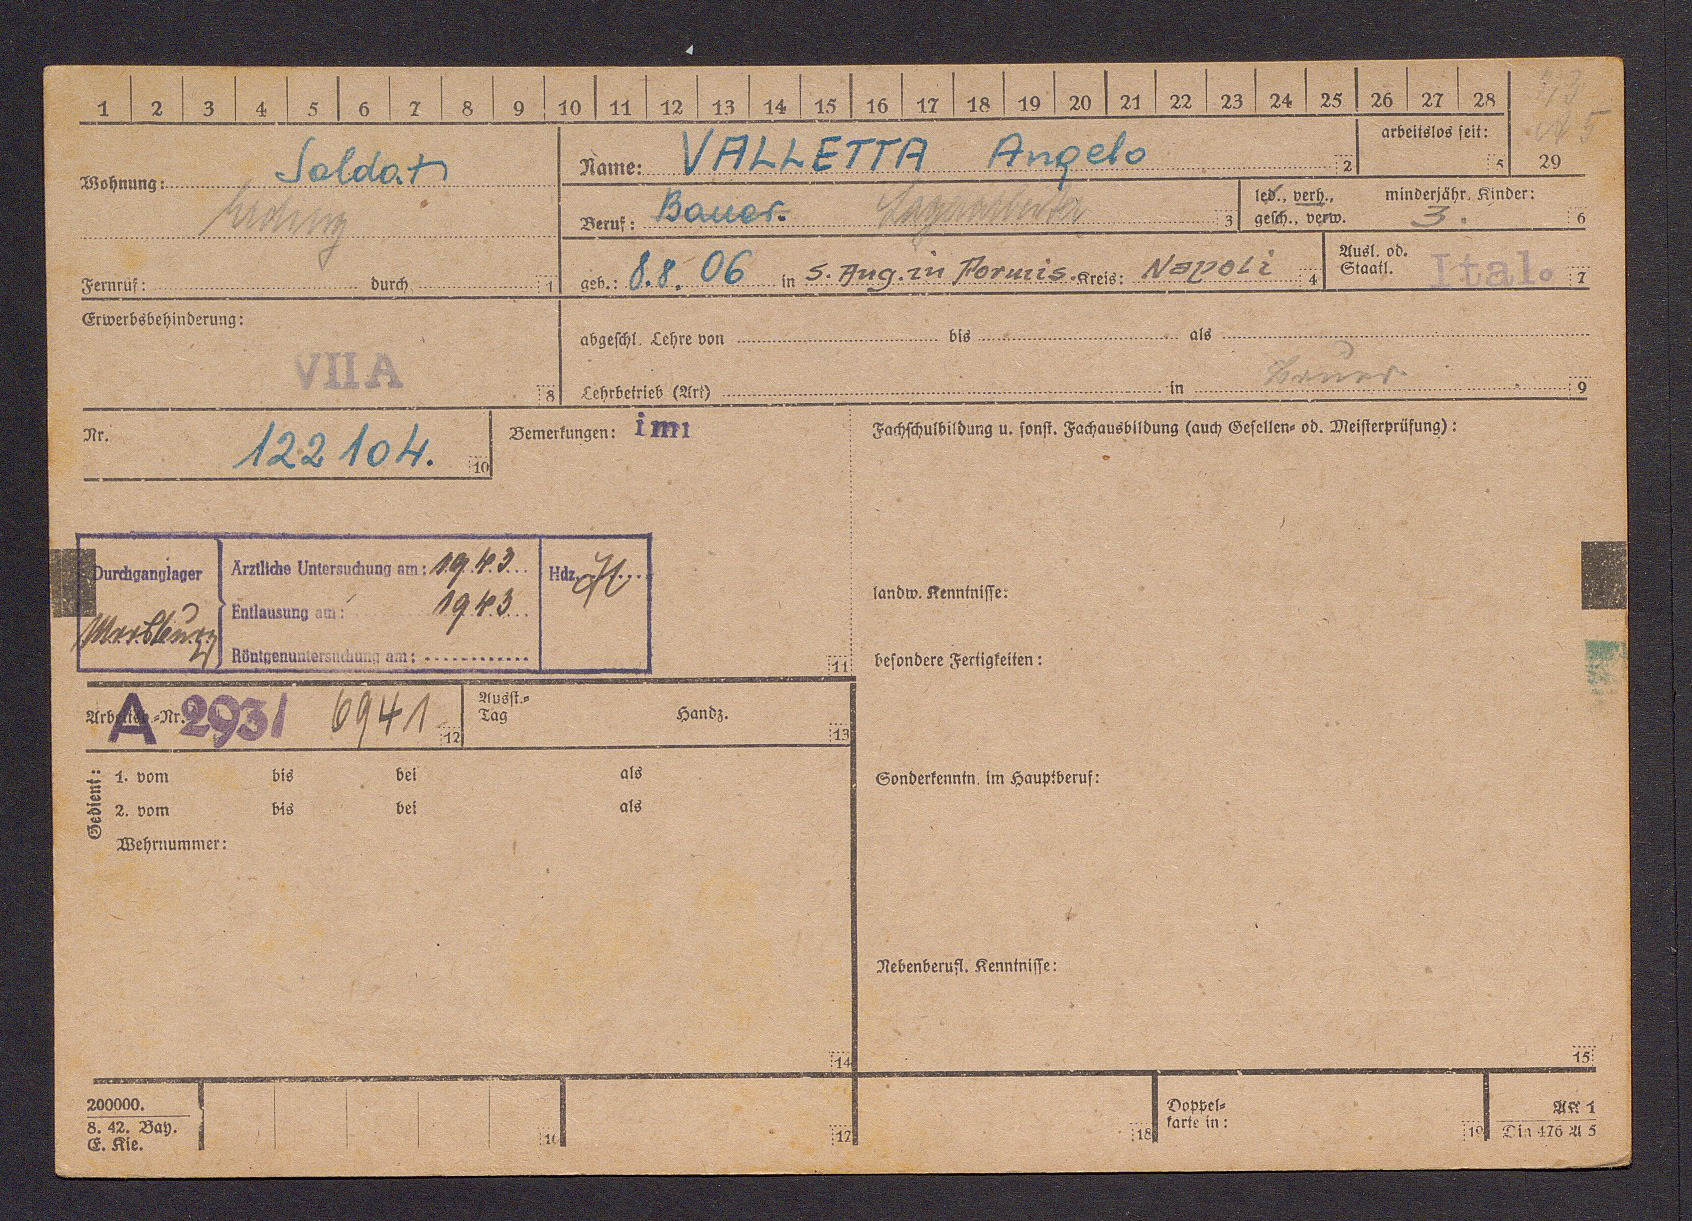 1 2 3 4 5 6 7 8 9 10 11 12 13 14 15 16 17 18 19 20 21 22 23 24 25 26 27 28
29
Wohnung: Soldat
Name: VALLETTA Angelo 2
arbeitslos seit: 5
Beruf: Bauer. 3
led., verh., gesch., verw.
minderjähr. Kinder: 3. 6
Fernruf: durch 1
geb.: 8.8.06 in S. Ang. in Formis. Kreis: Napoli 4
Ausl. od. Staatl. Ital. 7
Erwerbsbehinderung:
VII A 8
abgeschl. Lehre von bis als
Lehrbetrieb (Art) in 9
Nr. 122104. 10
Bemerkungen: imi
Fachschulbildung u. sonst. Fachausbildung (auch Gesellen- od. Meisterprüfung):
Durchganglager
Ärztliche Untersuchung am: 1943
Entlausung am: 1943
Röntgenuntersuchung am:
Hdz.
11
landw. Kenntnisse:
besondere Fertigkeiten:
Arbeitsb.-Nr. A 293/ 6941 12
Ausst.-Tag Handz. 13
Gedient:
1. vom bis bei als
2. vom bis bei als
Wehrnummer:
14
Sonderkenntn. im Hauptberuf:
Nebenberufl. Kenntnisse:
15
200000.
8. 42. Bay.
E. Kie.
16
17
18
Doppel-
karte in: 19
AK 1
Din 476 A 5